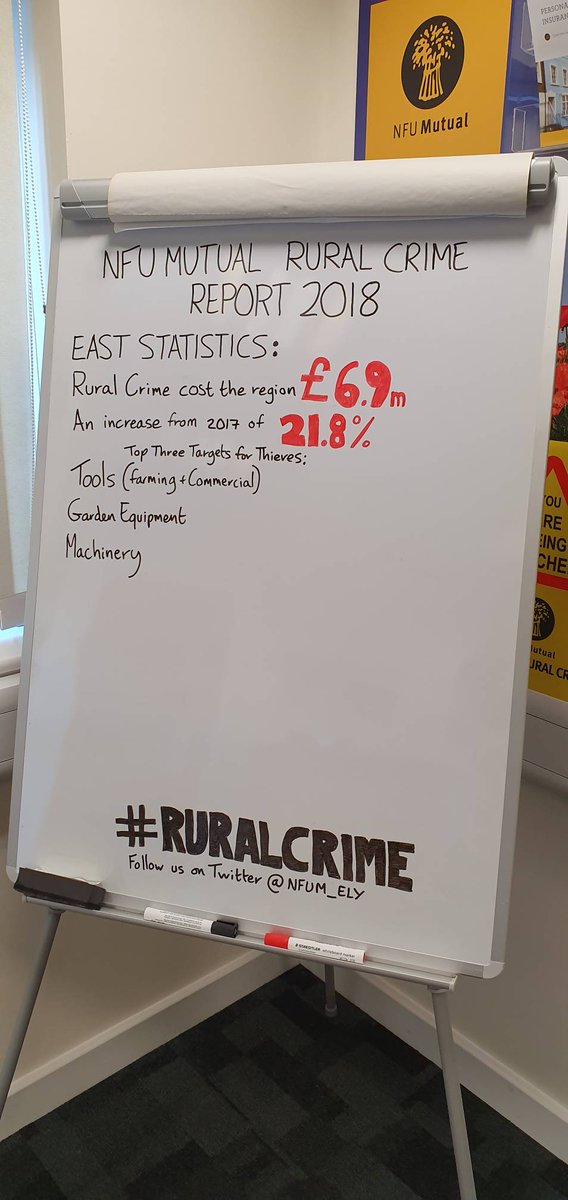 PERSONA
INSURAN
NFU Mutual
NFU MUTUAL RURAL CRIME
REPORT 2018
EAST STATISTICS:
Rural Crime cost the region £6.9m
An increase from 2017 of 21.8%
Top Three Targets for Thieves:
Tools (farming + Commercial)
Garden Equipment
Machinery
YOU
ARE
EING
CHE
Mutual
URAL CR
#RURALCRIME
Follow us on Twitter @NFUM_ELY
STAEDTLER whiteboard marker